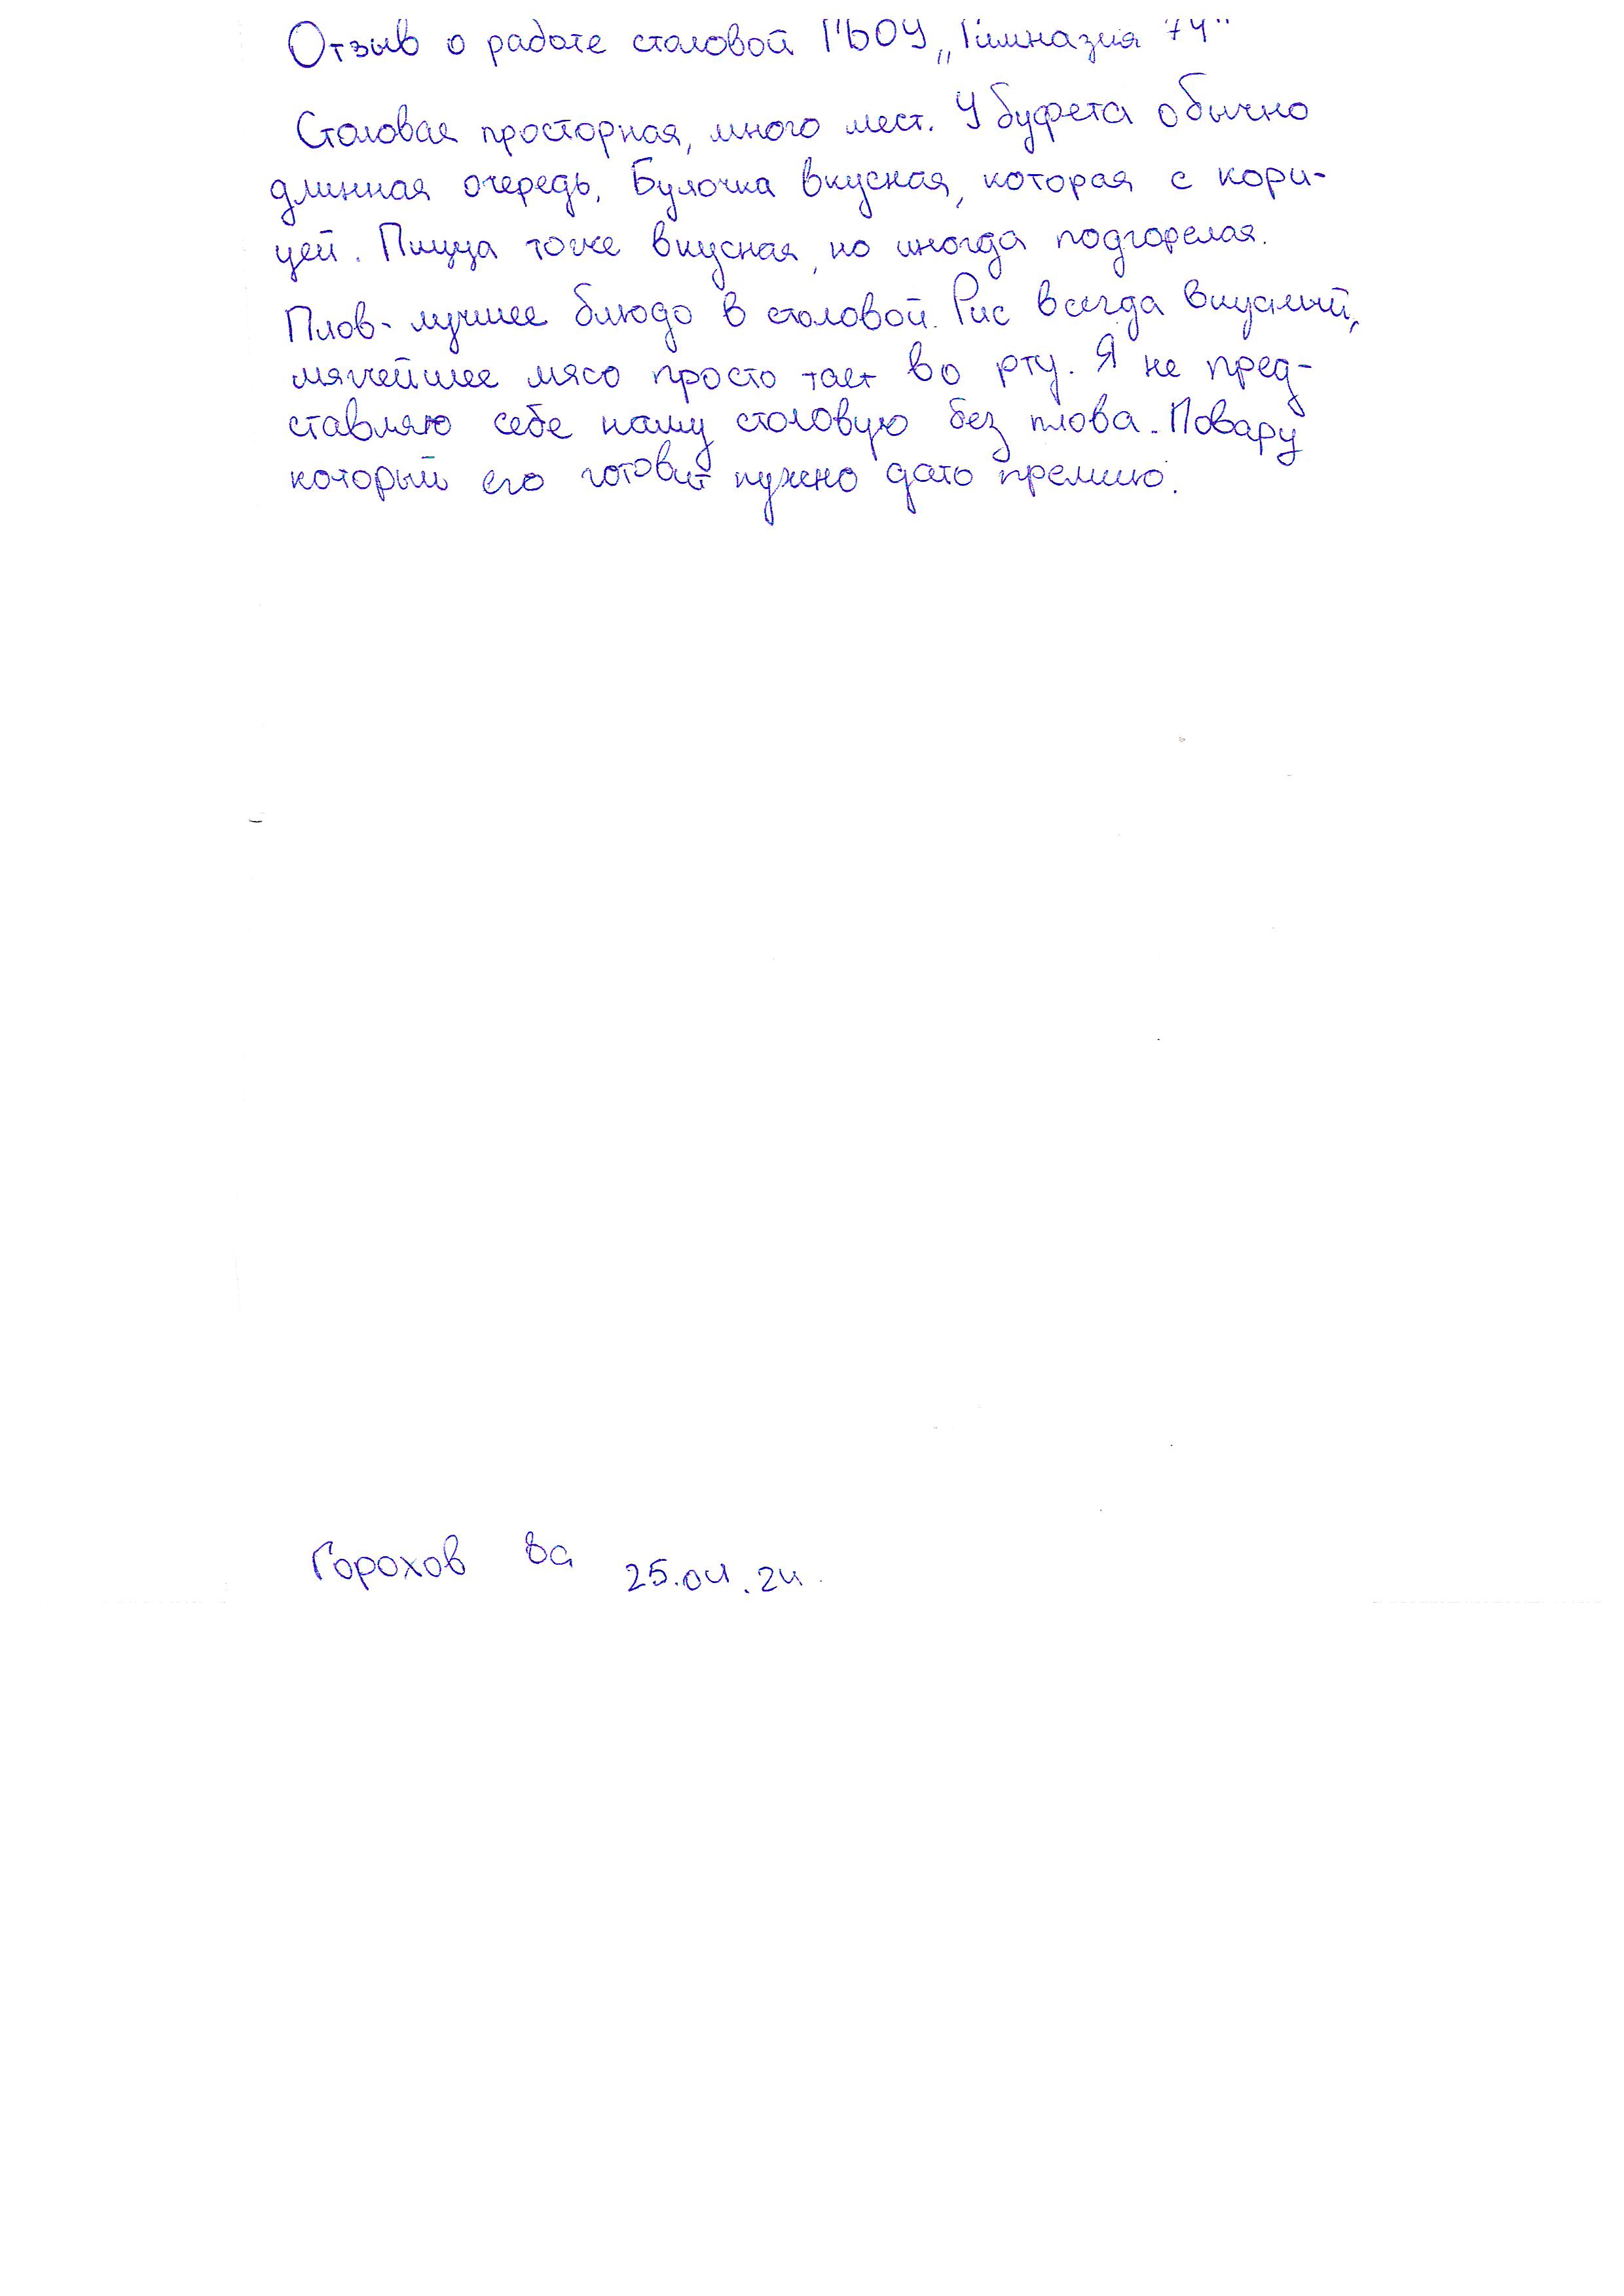 Отзыв о работе столовой ГБОУ „Гимназия 74"
Столовая просторная, много мест. У буфета обычно
длинная очередь. Булочка вкусная, которая с кори-
цей. Пицца тоже вкусная, но иногда подгорелая.
Плов - лучшее блюдо в столовой. Рис всегда вкусный,
мягчейшее мясо просто тает во рту. Я не пред-
ставляю себе нашу столовую без плова. Повару
который его готовит нужно дать премию.
Горохов 8а 25.04.24.